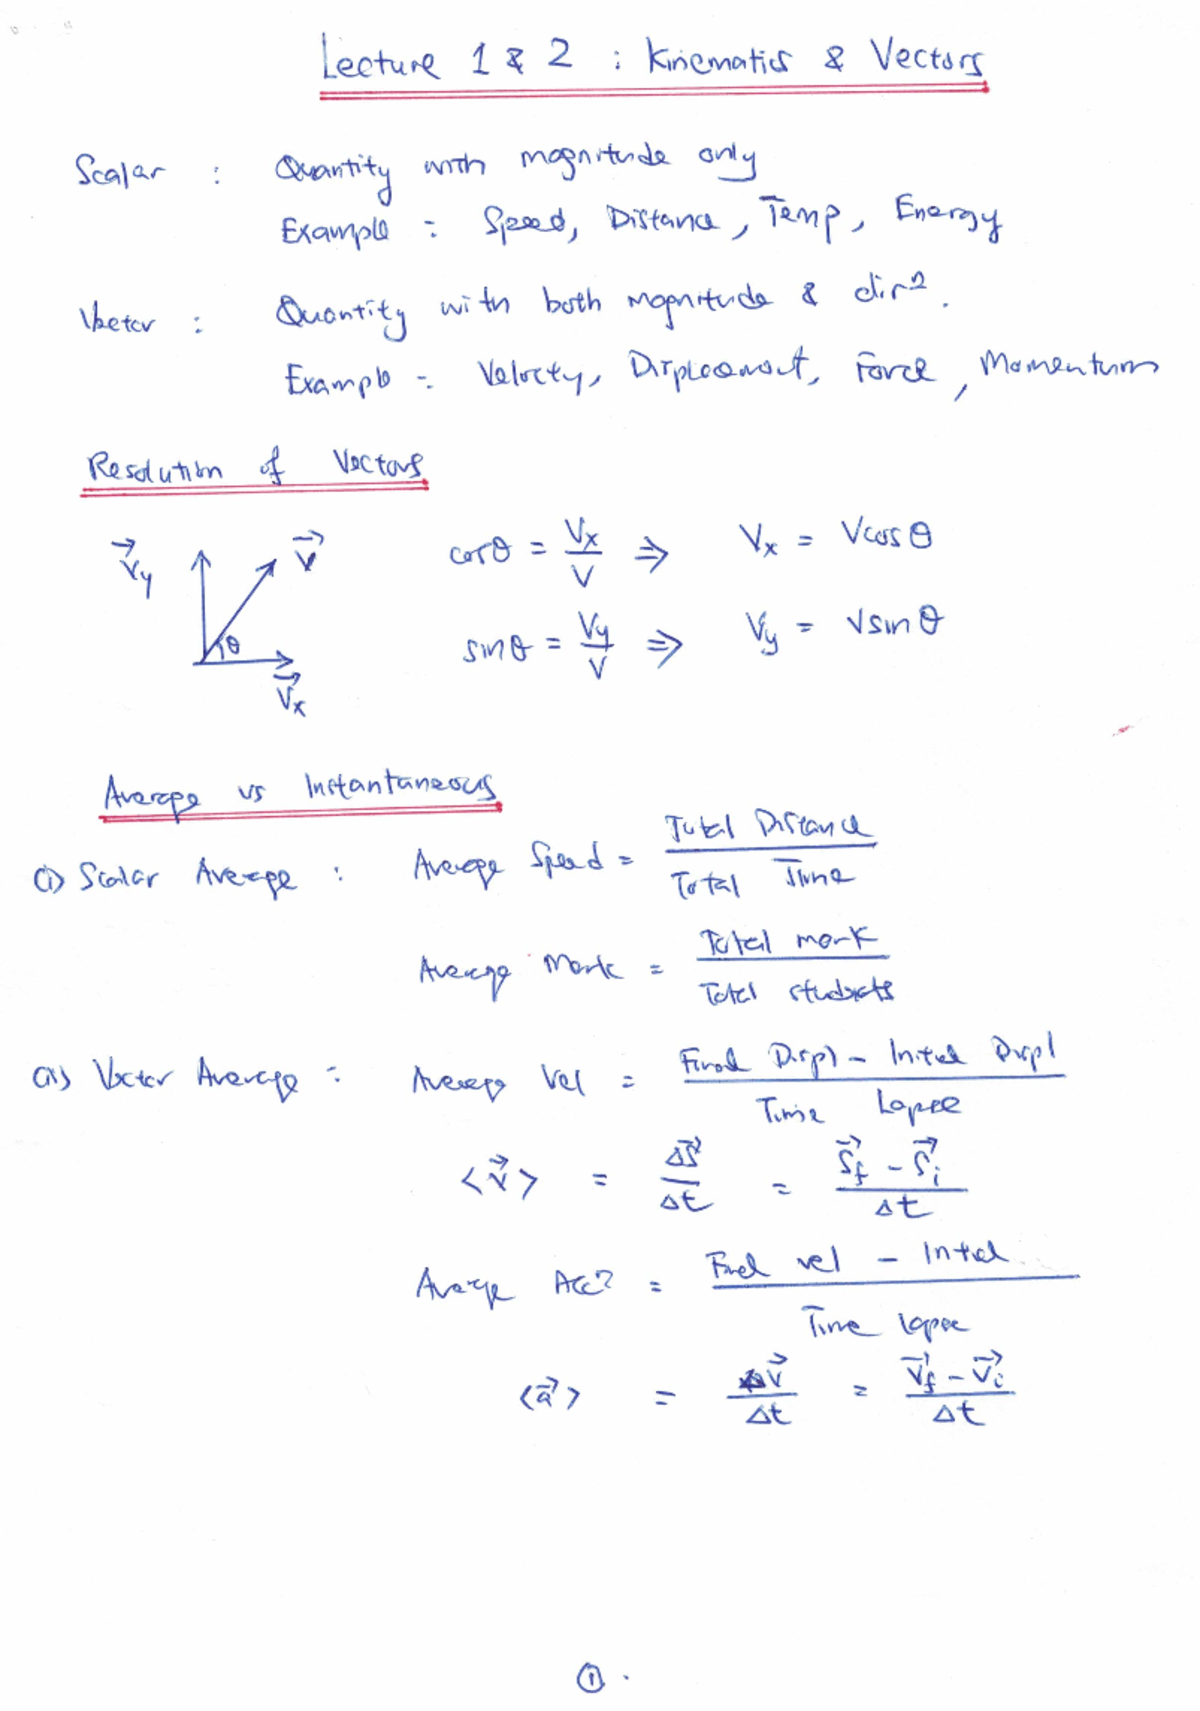 Lecture 1 & 2 : Kinematics & Vectors
Scalar : Quantity with magnitude only
Example : Speed, Distance, Temp, Energy
Vector : Quantity with both magnitude & dirⁿ.
Example : Velocity, Displacement, Force, Momentum
Resolution of Vectors
V⃗y V⃗ cosθ = Vx/V ⇒ Vx = Vcosθ
θ sinθ = Vy/V ⇒ Vy = Vsinθ
V⃗x
Average vs Instantaneous
(i) Scalar Average : Average Speed = Total Distance / Total Time
Average Mark = Total mark / Total students
(ii) Vector Average : Average Vel = Final Displ - Initial Displ / Time Lapse
<v⃗> = ΔS⃗/Δt = S⃗f - S⃗i / Δt
Average Accⁿ = Final vel - Initial / Time lapse
<a⃗> = Δv⃗/Δt = v⃗f - v⃗i / Δt
① .